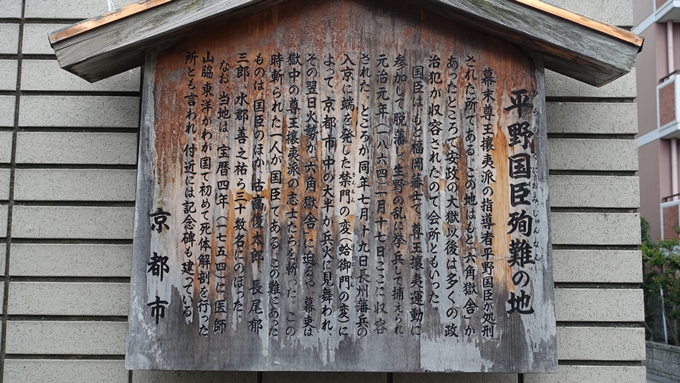 平野国臣殉難の地
ひらのくにおみじゅんなん
幕末尊王攘夷派の指導者平野国臣が処刑
された所である。この地はもと「六角獄舎」が
あったところで安政の大獄以後は多くの政
治犯が収容されたので会所ともいった。
国臣はもと福岡藩士で、尊王攘夷運動に
参加して脱藩し生野の乱に挙兵して捕えられ
元治元年(一八六四)一月十七日ここに収容
された。ところが同年七月十九日長州藩兵の
入京に端を発した禁門の変(蛤御門の変)に
よって、京都市中の大半が兵火に見舞われ、
その翌日火勢が「六角獄舎」に迫るや、幕吏は
獄中の尊王攘夷派の志士たちを斬った。この
時斬られた一人が国臣である。この難にあった
ものは、国臣のほか、古高俊太郎、長尾郁
三郎、水郡善之祐ら三十数名にのぼった。
なお、当地は、宝暦四年(一七五四)に医師
山脇東洋がわが国で初めて死体解剖を行った
所とも言われ、付近には記念碑も建っている。
京都市